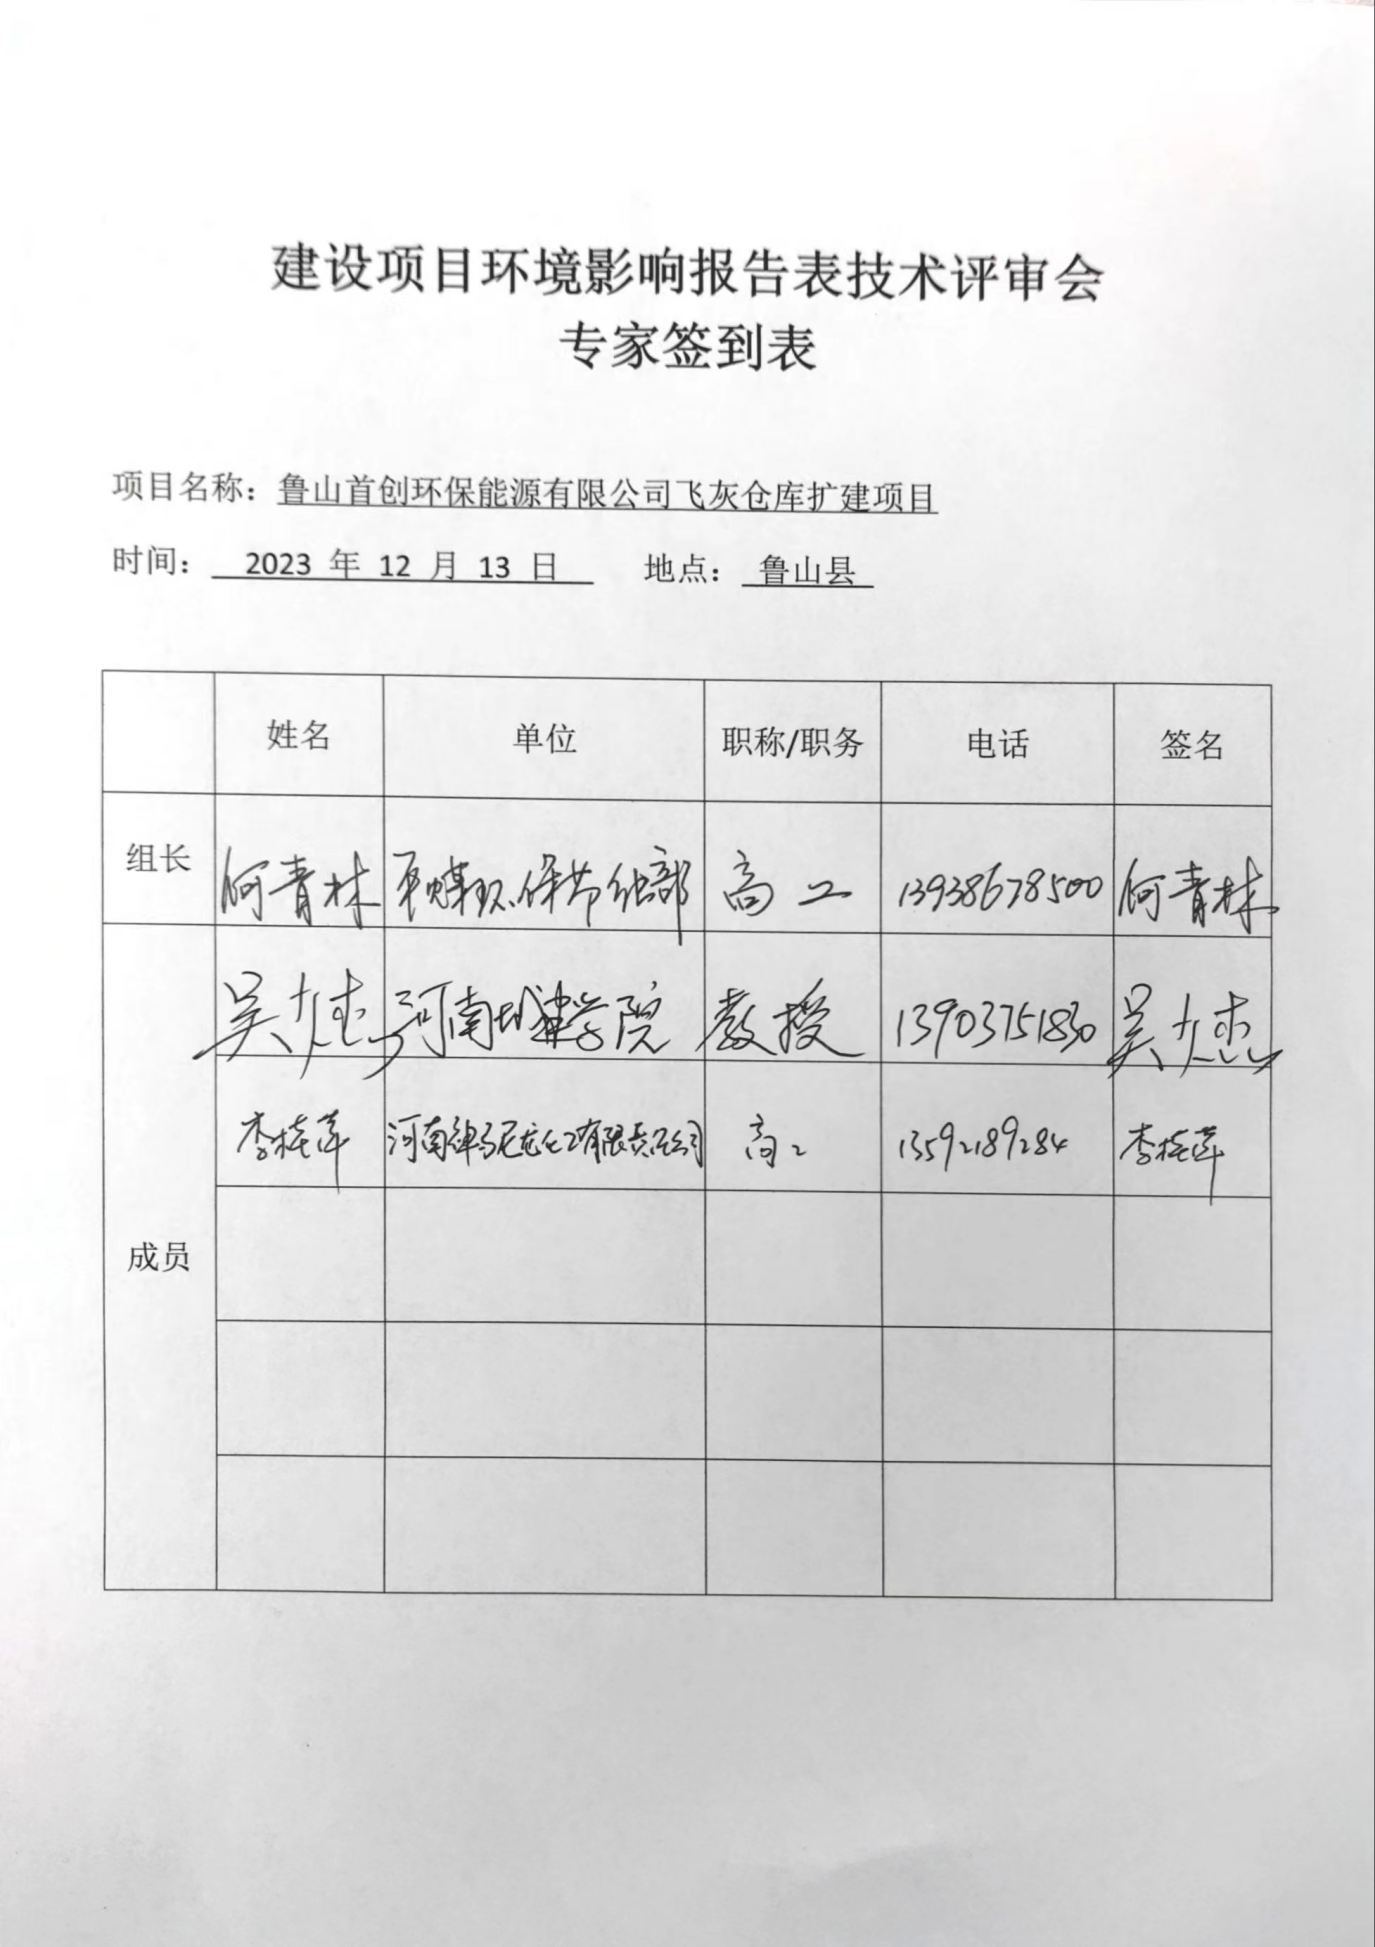 建设项目环境影响报告表技术评审会
专家签到表
项目名称：鲁山首创环保能源有限公司飞灰仓库扩建项目
时间： 2023 年 12 月 13 日 地点： 鲁山县
姓名 单位 职称/职务 电话 签名
组长 何青林 平煤环保节能部 高工 13938678500 何青林
吴 河南城建学院 教授 13903751830 吴
李桂萍 河南神马尼龙化工有限责任公司 高工 13592189284 李桂萍
成员